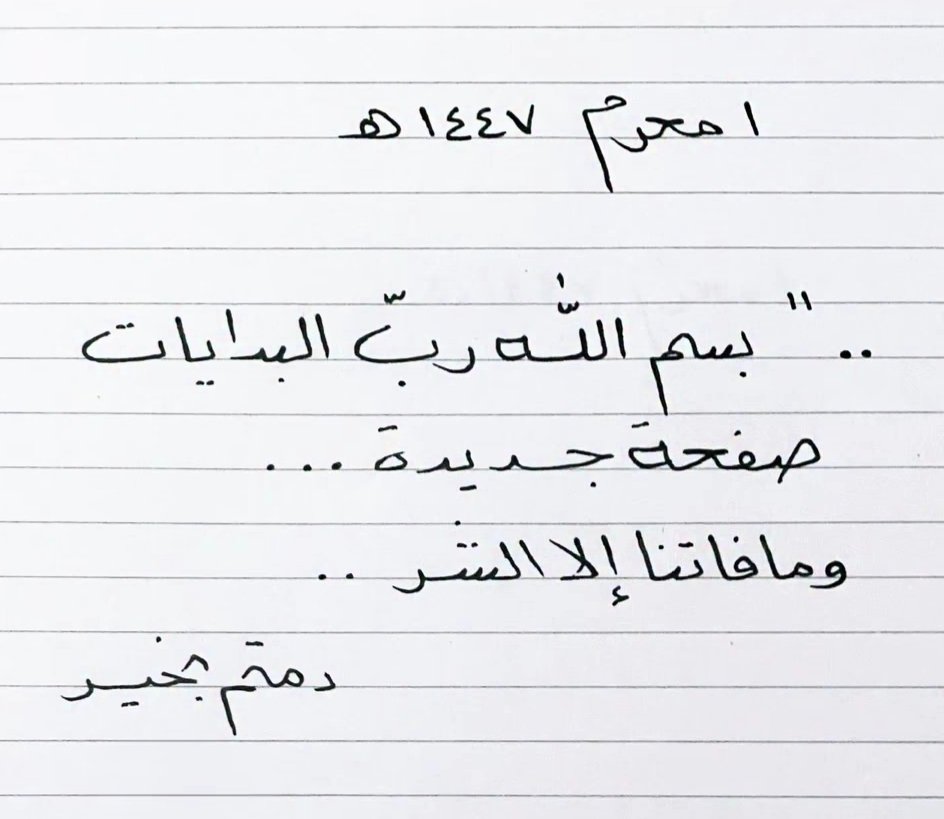 ١ محرم ١٤٤٧هـ
.. " بسم اللّٰه ربّ البدايات
صفحة جديدة ...
وما فاتنا إلا الشر ..
دمتم بخير